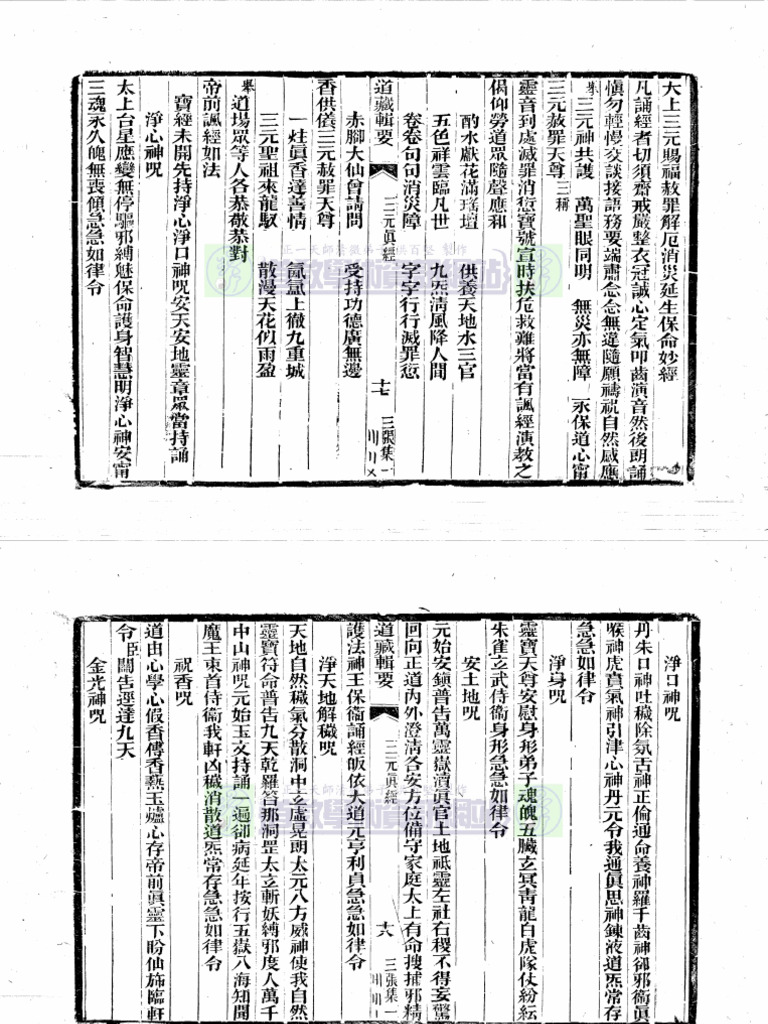 大上三元賜福赦罪解厄消災延生保命妙經
凡誦經者切須齋戒嚴整衣冠誠心定氣叩齒演音然後朗誦
愼勿輕慢交談接語務要端肅念念無違隨願禱祝自然感應
舉
三元神共護 萬聖眼同明 無災亦無障 永保道心甯
三元赦罪天尊 三稱
靈音到處滅罪消愆寶號宣時扶危救難將當有諷經演教之
偈仰勞道眾隨聲應和
酌水獻花滿瑤壇 供養天地水三官
五色祥雲臨凡世 九炁淸風降人間
卷卷句句消災障 字字行行滅罪愆
道藏輯要 三元眞經 十七 三張集一
赤腳大仙會請問 受持功德廣無邊
香供儀三元赦罪天尊
一炷眞香達善情 氤氳上徹九重城
三元聖祖來龍馭 散漫天花似雨盈
舉
道場眾等人各恭敬恭對
帝前諷經如法
寶經未開先持淨心淨口神呪安天安地靈章眾當持誦
淨心神呪
太上台星應變無停驅邪縛魅保命護身智慧明淨心神安甯
三魂永久魄無喪傾急急如律令
淨口神呪
丹朱口神吐穢除氛舌神正倫通命養神羅千齒神卻邪衞眞
喉神虎賁氣神引津心神丹元令我通眞思神鍊液道炁常存
急急如律令
淨身呪
靈寶天尊安慰身形弟子魂魄五臟玄冥靑龍白虎隊仗紛紜
朱雀玄武侍衞身形急急如律令
安土地呪
元始安鎭普告萬靈嶽瀆眞官土地祗靈左社右稷不得妄驚
回向正道內外澄淸各安方位備守家庭太上有命搜捕邪精
道藏輯要 三元眞經 十八 三張集一
護法神王保衞誦經皈依大道元亨利貞急急如律令
淨天地解穢呪
天地自然穢氣分散洞中玄虛晃朗太元八方威神使我自然
靈寶符命普告九天乾羅答那洞罡太玄斬妖縛邪度人萬千
中山神呪元始玉文持誦一遍卻病延年按行五嶽八海知聞
魔王束首侍衞我軒凶穢消散道炁常存急急如律令
祝香呪
道由心學心假香傳香爇玉爐心存帝前眞靈下盼仙旆臨軒
令臣關告逕達九天
金光神呪